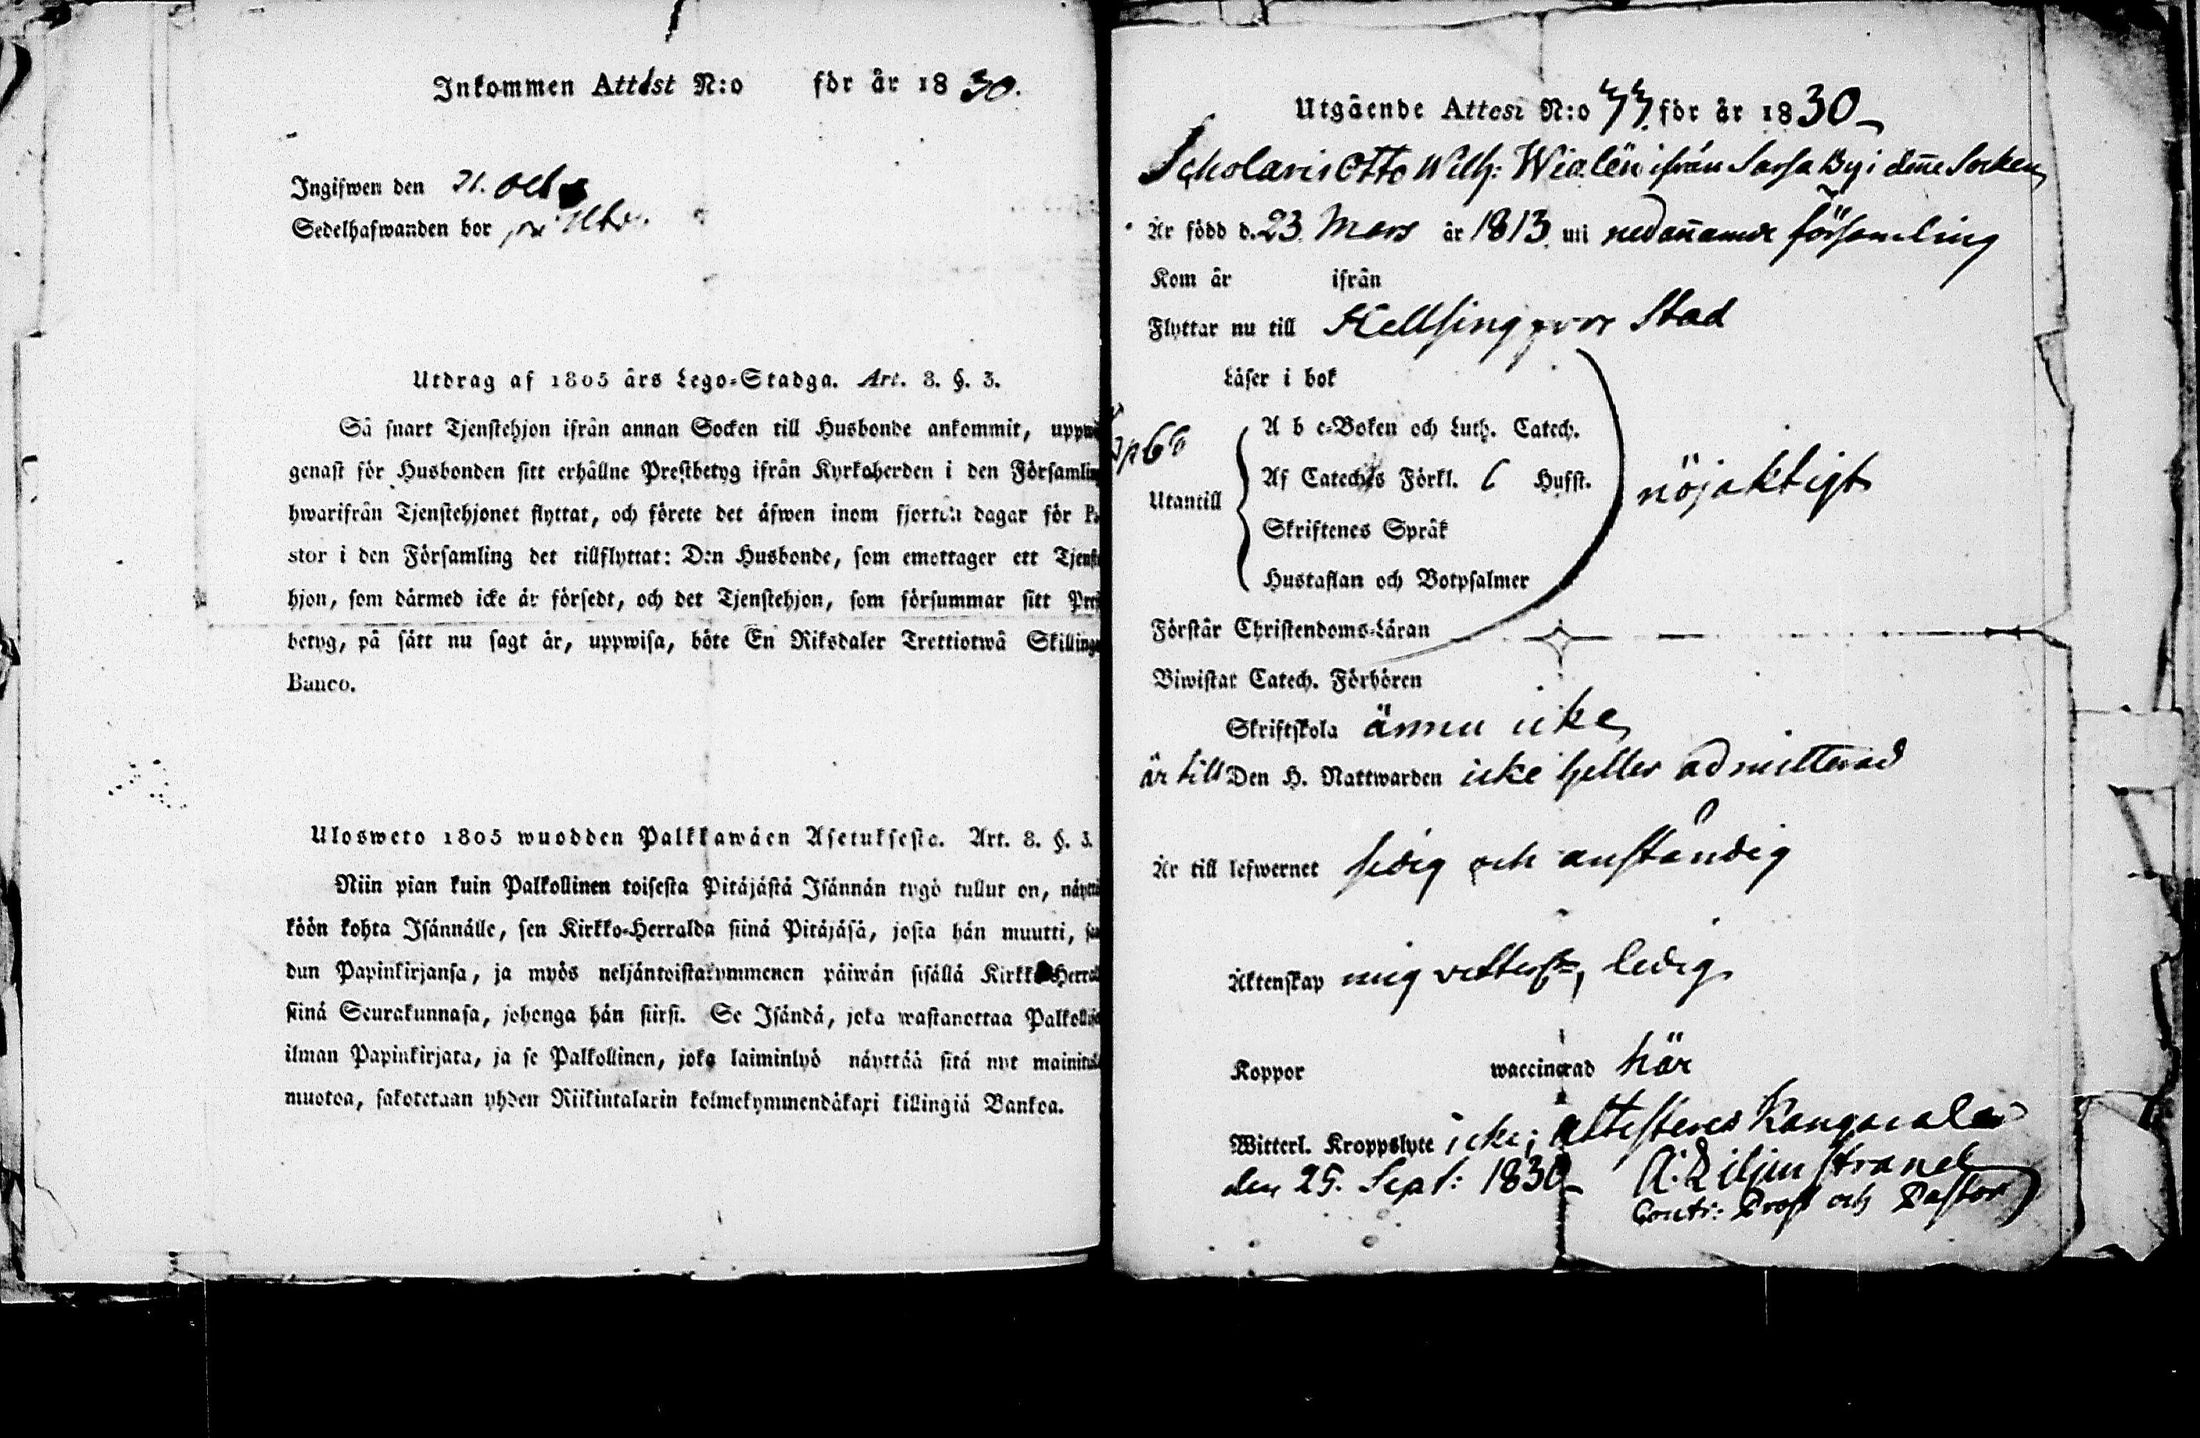 Inkommen Attest N:o för år 1830.
Ingifwen den 21. Octb
Sedelhafwanden bor
Utdrag af 1805 års Lego-Stadga. Art. 8. §. 3.
Så snart Tjenstehjon ifrån annan Socken till Husbonde ankommit, uppwi
genast för Husbonden sitt erhållne Prestbetyg ifrån Kyrkoherden i den Församling
hwarifrån Tjenstehjonet flyttat, och förete det äfwen inom fjorton dagar för Pa
stor i den Församling det tillflyttat: Den Husbonde, som emottager ett Tjenst
hjon, som därmed icke är försedt, och det Tjenstehjon, som försummar sitt Prest
betyg, på sätt nu sagt är, uppwisa, böte En Riksdaler Trettiotwå Skillingar
Banco.
Ulosweto 1805 wuodden Palkkawäen Asetuksesta. Art. 8. §. 3.
Niin pian kuin Palkollinen toisesta Pitäjästä Isännän tygö tullut on, näyttä
köön kohta Isännälle, sen Kirkko-Herralda siinä Pitäjäsä, josta hän muutti, saa
dun Papinkirjansa, ja myös neljäntoistakymmenen päiwän sisällä Kirkko-Herral
siinä Seurakunnasa, johonga hän siirsi. Se Isändä, joka wastanottaa Palkollise
ilman Papinkirjata, ja se Palkollinen, joka laiminlyö näyttää sitä nyt mainitulla
muotoa, sakotetaan yhden Riikintalarin kolmekymmendäkaxi killingiä Bankoa.
Utgående Attest N:o 77 för år 1830
Scholaris Otto Wilh: Wialén ifrån Sarsa By i denne Socken
Är född d. 23 Mars år 1813 uti nedannämde församling
Kom år ifrån
Flyttar nu till Hellsingfors Stad
Läser i bok
A b c-Boken och Luth. Catech.
Utantill Af Cateches Förkl. 6 Hufst. nöjaktigt
Skriftenes Språk
Hustaflan och Botpsalmer
Förstår Christendoms-Läran
Biwistar Catech. Förhören
Skriftskola ännu icke
är till Den H. Nattwarden icke heller admitterad
Är till lefwernet sedig och anständig
Äktenskap mig vetterl., ledig
Koppor waccinerad här
Witterl. Kroppslyte icke; attesteres Kangasala
den 25. Sept: 1830 A: Liljenstrand
Contr: Prost och Pastor